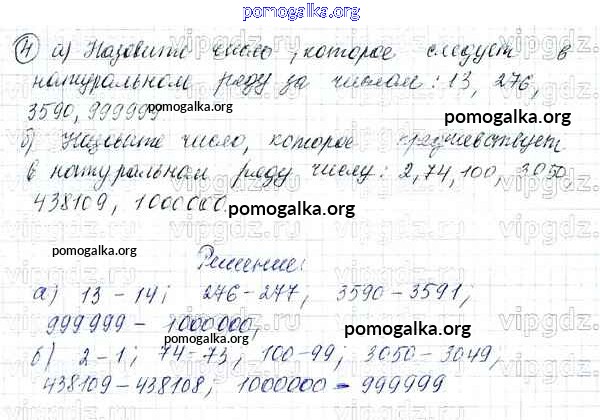 pomogalka.org
4) а) Назовите число, которое следует в
натуральном ряду за числом: 13, 276,
3590, 999999 pomogalka.org
pomogalka.org
б) Назовите число, которое предшествует
в натуральном ряду числу: 2, 74, 100, 3050,
438109, 1000000. pomogalka.org
pomogalka.org
Решение:
pomogalka.org
а) 13 – 14; 276 – 277; 3590 – 3591;
999999 – 1000000;
pomogalka.org
б) 2 – 1; 74 – 73, 100 – 99; 3050 – 3049;
438109 – 438108; 1000000 – 999999
pomogalka.org